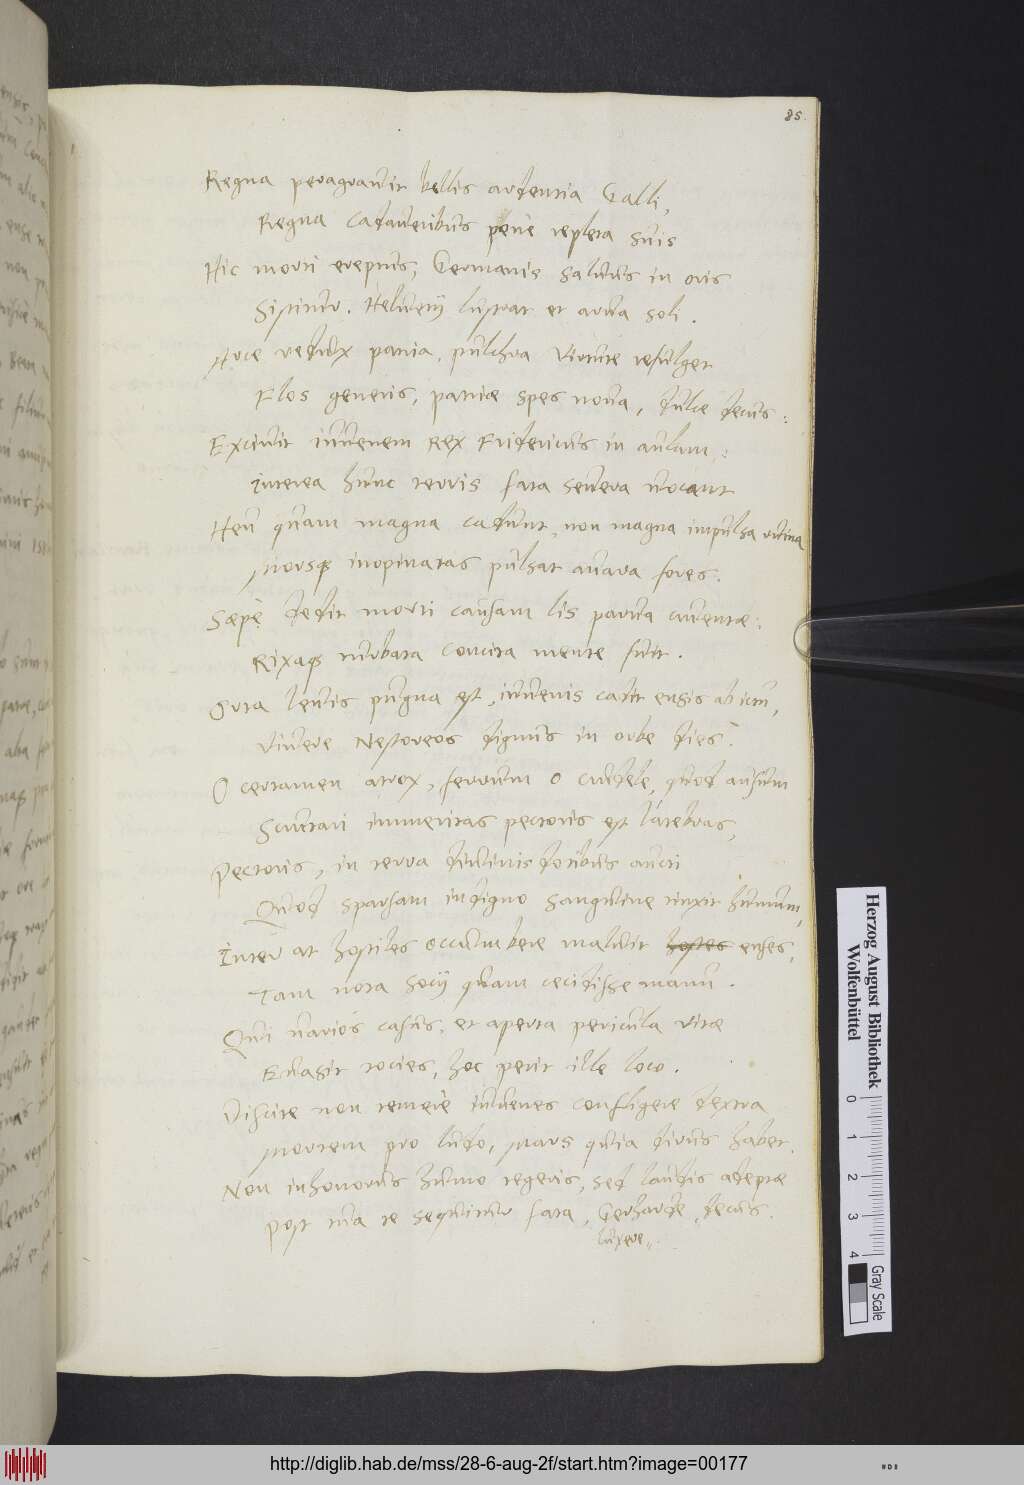 85
Regna peragravit bellis ardentia Galli,
Regna cadaveribus penè repleta suis
Hic morti ereptus, Germanis salvus in oris
Sistitur. Helvetij lustrat et arva soli.
Hoc redux patria, pulchra virtute refulget
Flos generis, patriæ spes nova, dulce decus:
Excivit iuvenem Rex Fridericus in aulam:
Interea hunc terris fata severa vocant
Heu quam magna cadunt, non magna impulsa ruina
Morsq inopinatas pulsat avara fores.
Sæpè dedit morti causam lis parva cruentæ:
Rixaq turbata concita mente fuit.
Orta levis pugna est, iuvenis cadit ensis ab ictu,
Vivere Nestoreos dignus in orbe dies.
O certamen atrox, ferrum o crudele, quod ausum
Scrutari immeritas pectoris est latebras,
Pectoris, in terra divinis dotibus aucti
Quod sparsam indigno sanguine tinxit humum,
Inter at hostiles occumbere maluit hostes enses,
Tam nota socij quam cecidisse manu.
Qui varios casus, et aperta pericula vitæ
Evasit toties, hoc perit ille loco.
Discite non temerè iuvenes confligere dextra
Mortem pro ludo, Mars quia dirus habet.
Non inhonorus humo tegeris, sed laudis adeptæ
Post tua te sequitur fata, Gerharde, decus.
luxere
Herzog August Bibliothek
Wolfenbüttel
0 1 2 3 4
Gray Scale
http://diglib.hab.de/mss/28-6-aug-2f/start.htm?image=00177